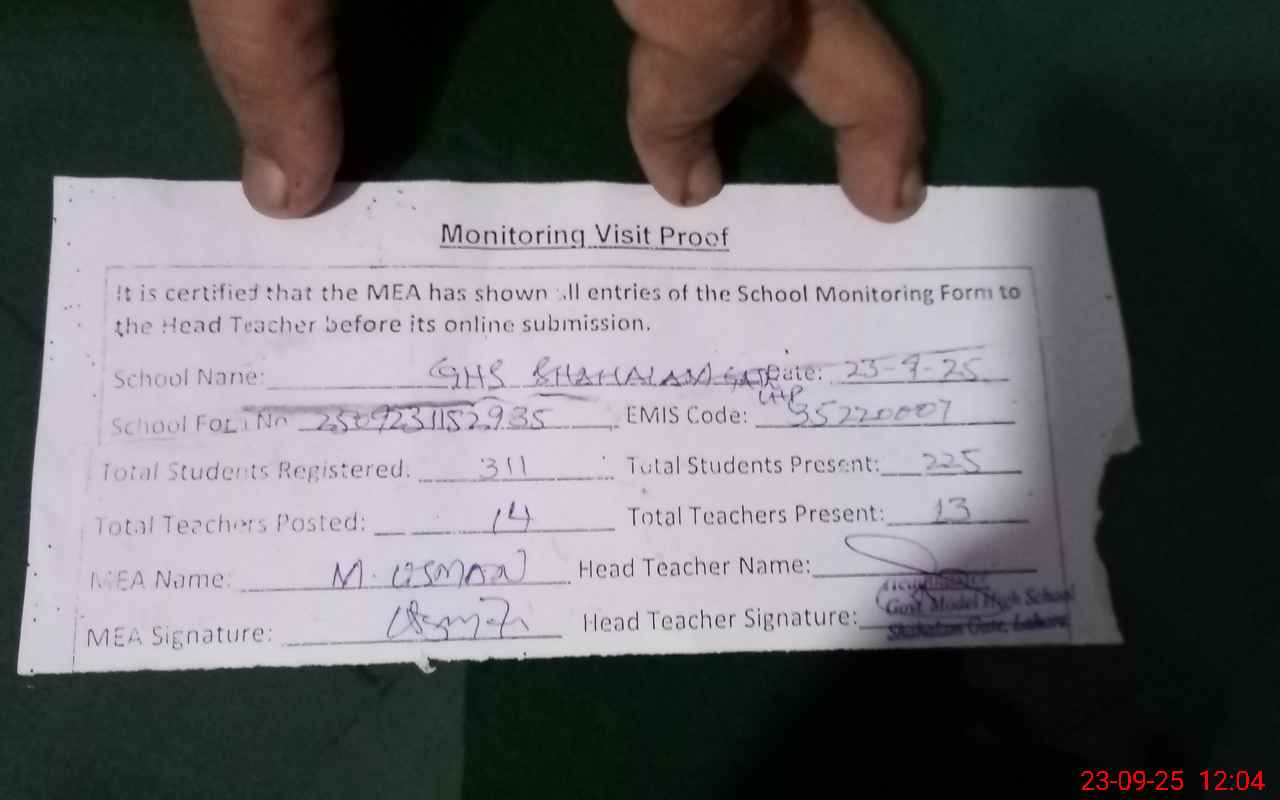 Monitoring Visit Proof
It is certified that the MEA has shown all entries of the School Monitoring Form to
the Head Teacher before its online submission.
School Name: GHS SHAHALAM GATE LHR Date: 23-9-25
School Form No 2509231152935 EMIS Code: 35220007
Total Students Registered: 311 Total Students Present: 225
Total Teachers Posted: 14 Total Teachers Present: 13
MEA Name: M. USMAN Head Teacher Name:
MEA Signature: Head Teacher Signature:
Headmaster
Govt Model High School
Shahalam Gate, Lahore
23-09-25 12:04